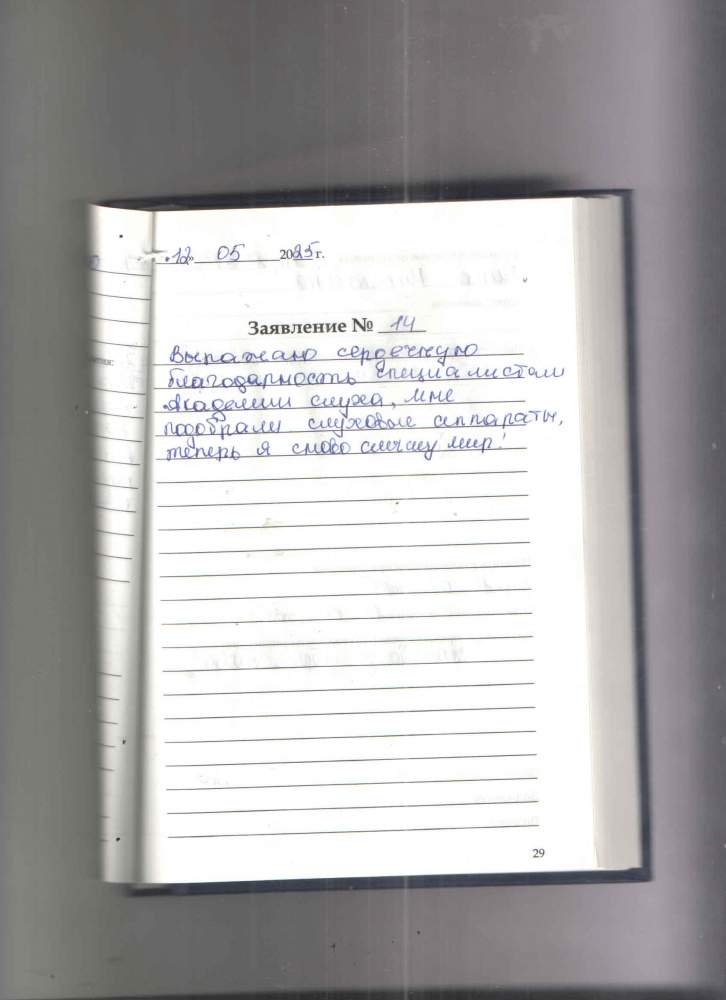 «12» 05 2025г.
Заявление № 14
Выражаю сердечную
благодарность специалистам
Академии слуха, мне
подобрали слуховые аппараты,
теперь я снова слышу мир!
29